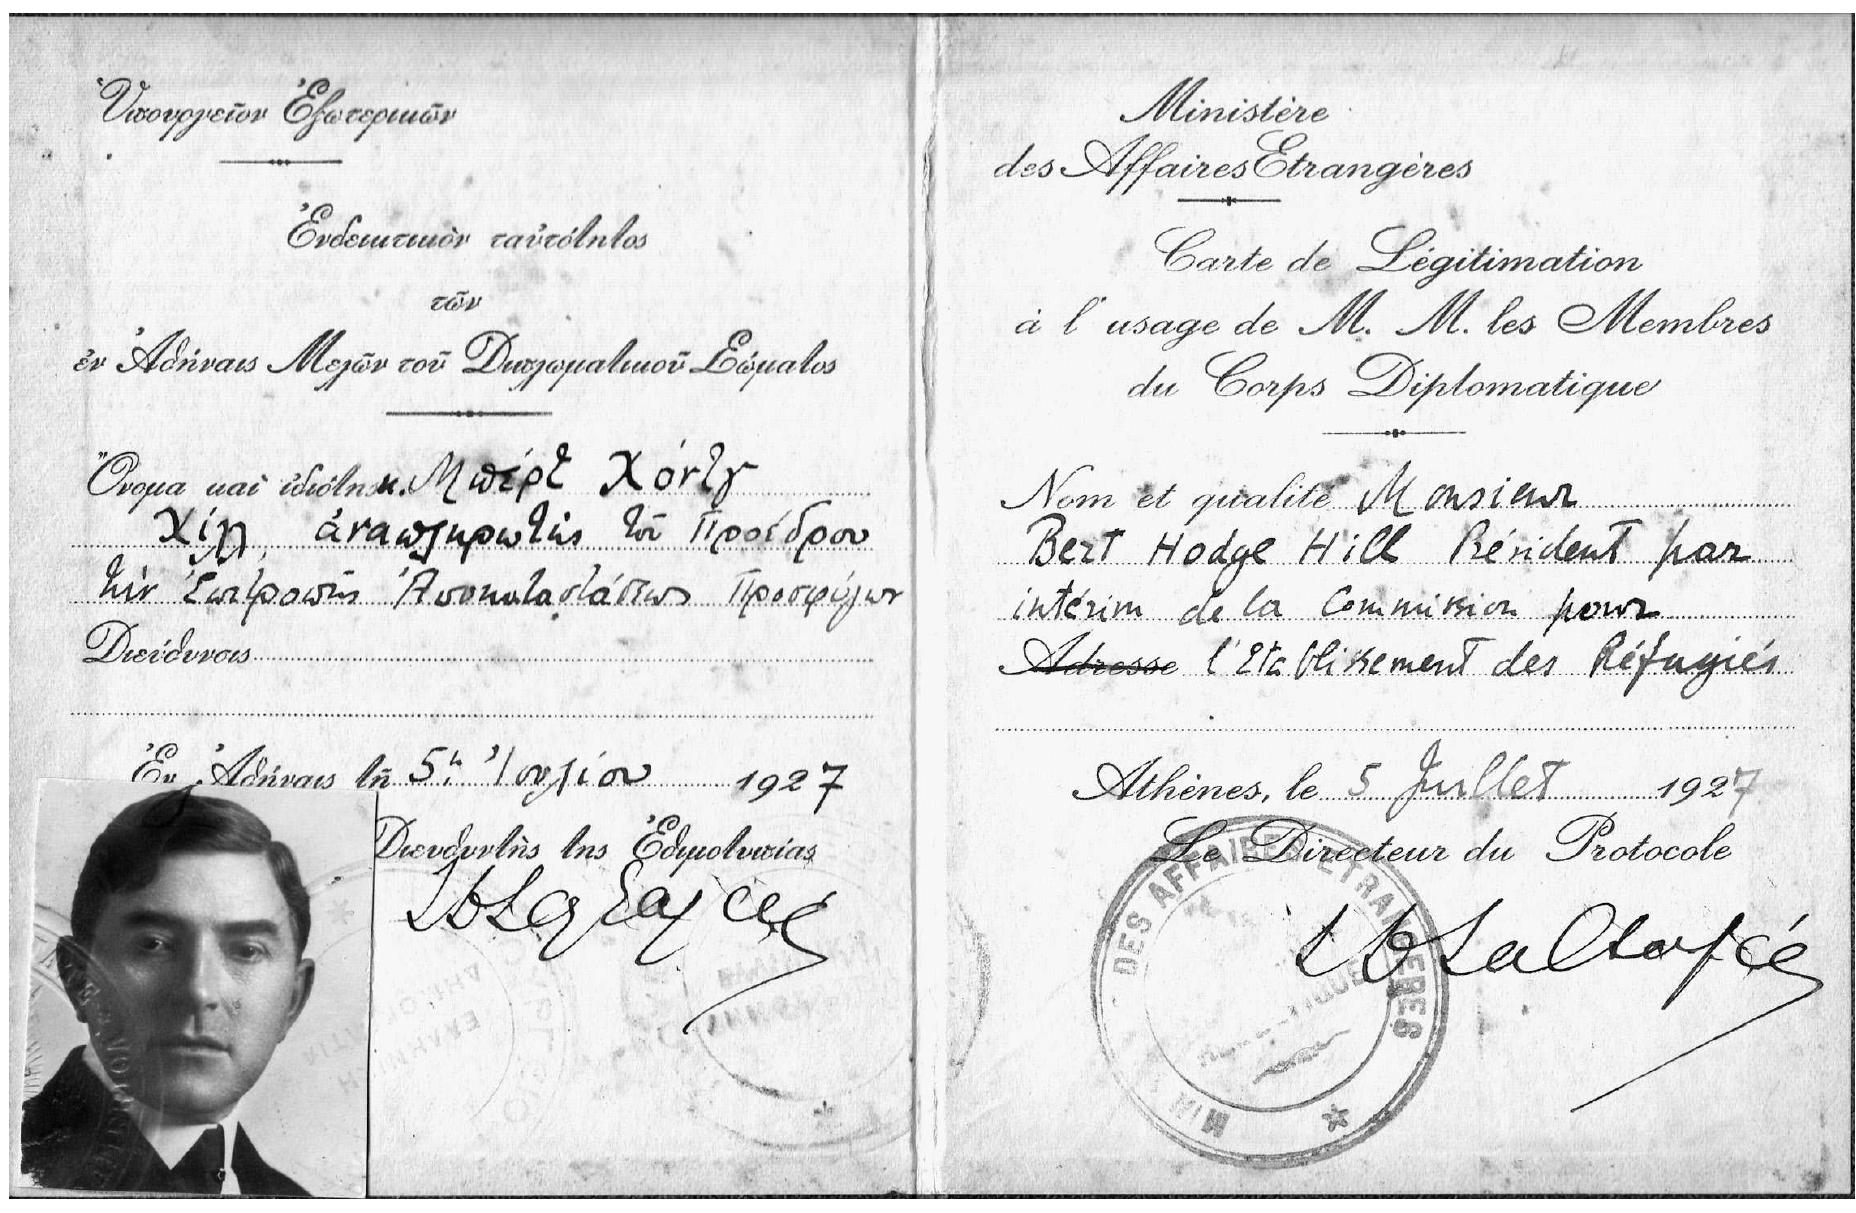 Ὑπουργεῖον Ἐξωτερικῶν
Ἐνδεικτικὸν ταὐτότητος
τῶν
ἐν Ἀθήναις Μελῶν τοῦ Διπλωματικοῦ Σώματος
Ὄνομα καὶ ἰδιότης κ. Μπέρτ Χότζ
Χίλλ, ἀναπληρωτὴς τοῦ Προέδρου
τῆς Ἐπιτροπῆς Ἀποκαταστάσεως Προσφύγων
Διεύθυνσις
Ἐν Ἀθήναις τῇ 5ῃ Ἰουλίου 1927
Διευθυντὴς της Ἐθιμοτυπίας
Ministère
des Affaires Etrangères
Carte de Légitimation
à l'usage de M. M. les Membres
du Corps Diplomatique
Nom et qualité Monsieur
Bert Hodge Hill Président par
intérim de la Commission pour
Adresse l'Etablissement des Réfugiés
Athènes, le 5 Juillet 1927
Le Directeur du Protocole
DES AFFAIRES ETRANGERES